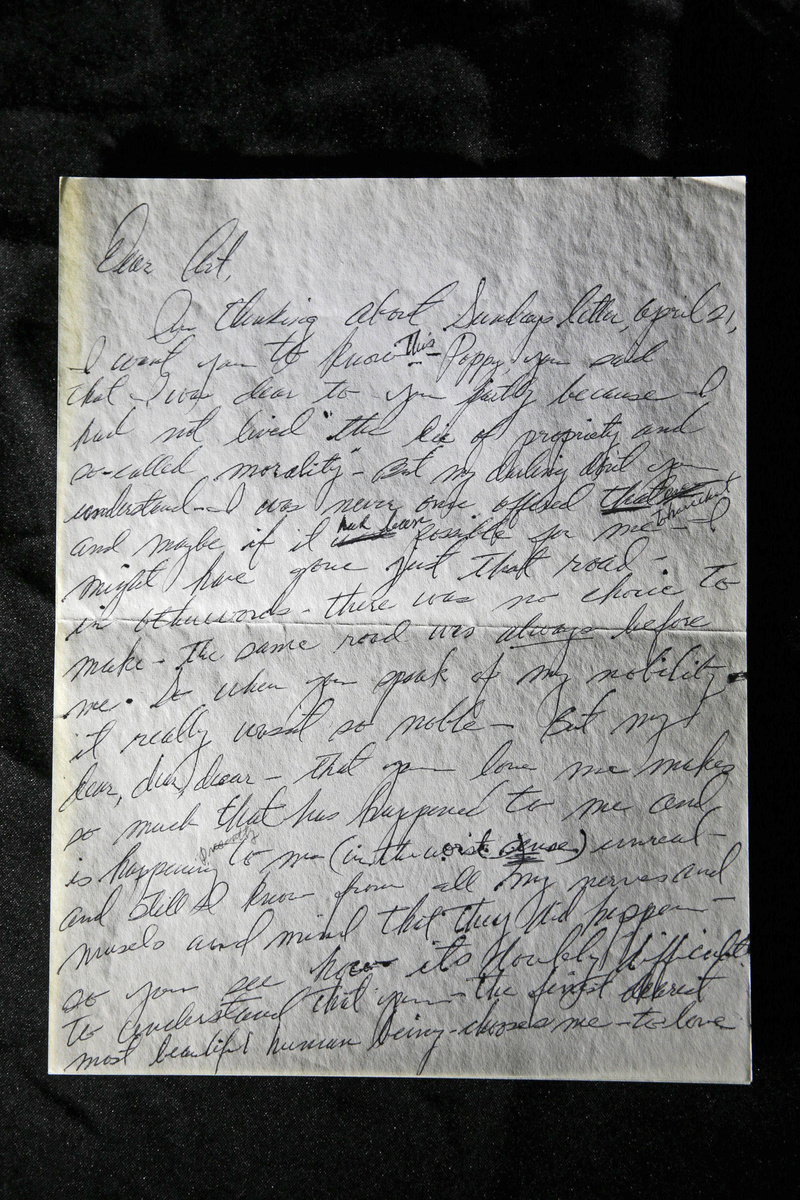 Dear Art,
In thinking about Sundays letter, April 21,
I want you to know This - Poppy, you said
that I was dear to you partly because I
had not lived "the lie of propriety and
so-called morality" - But my darling don't you
understand - I was never once offered that
and maybe if it had been possible for me - I
might have gone just that road -
in otherwords - there was no choice to
make - the same road was always before
me. So when you speak of my nobility
it really wasnt so noble - But my
dear, dear, dear - that you love me makes
so much that has happened to me and
is happening presently to me (in the worst sense) unreal -
and still I know from all my nerves and
musels and mind that they did happen -
so you see how its doubly difficult
to understand that you - the finest dearest
most beautiful human being - chooses me - to love